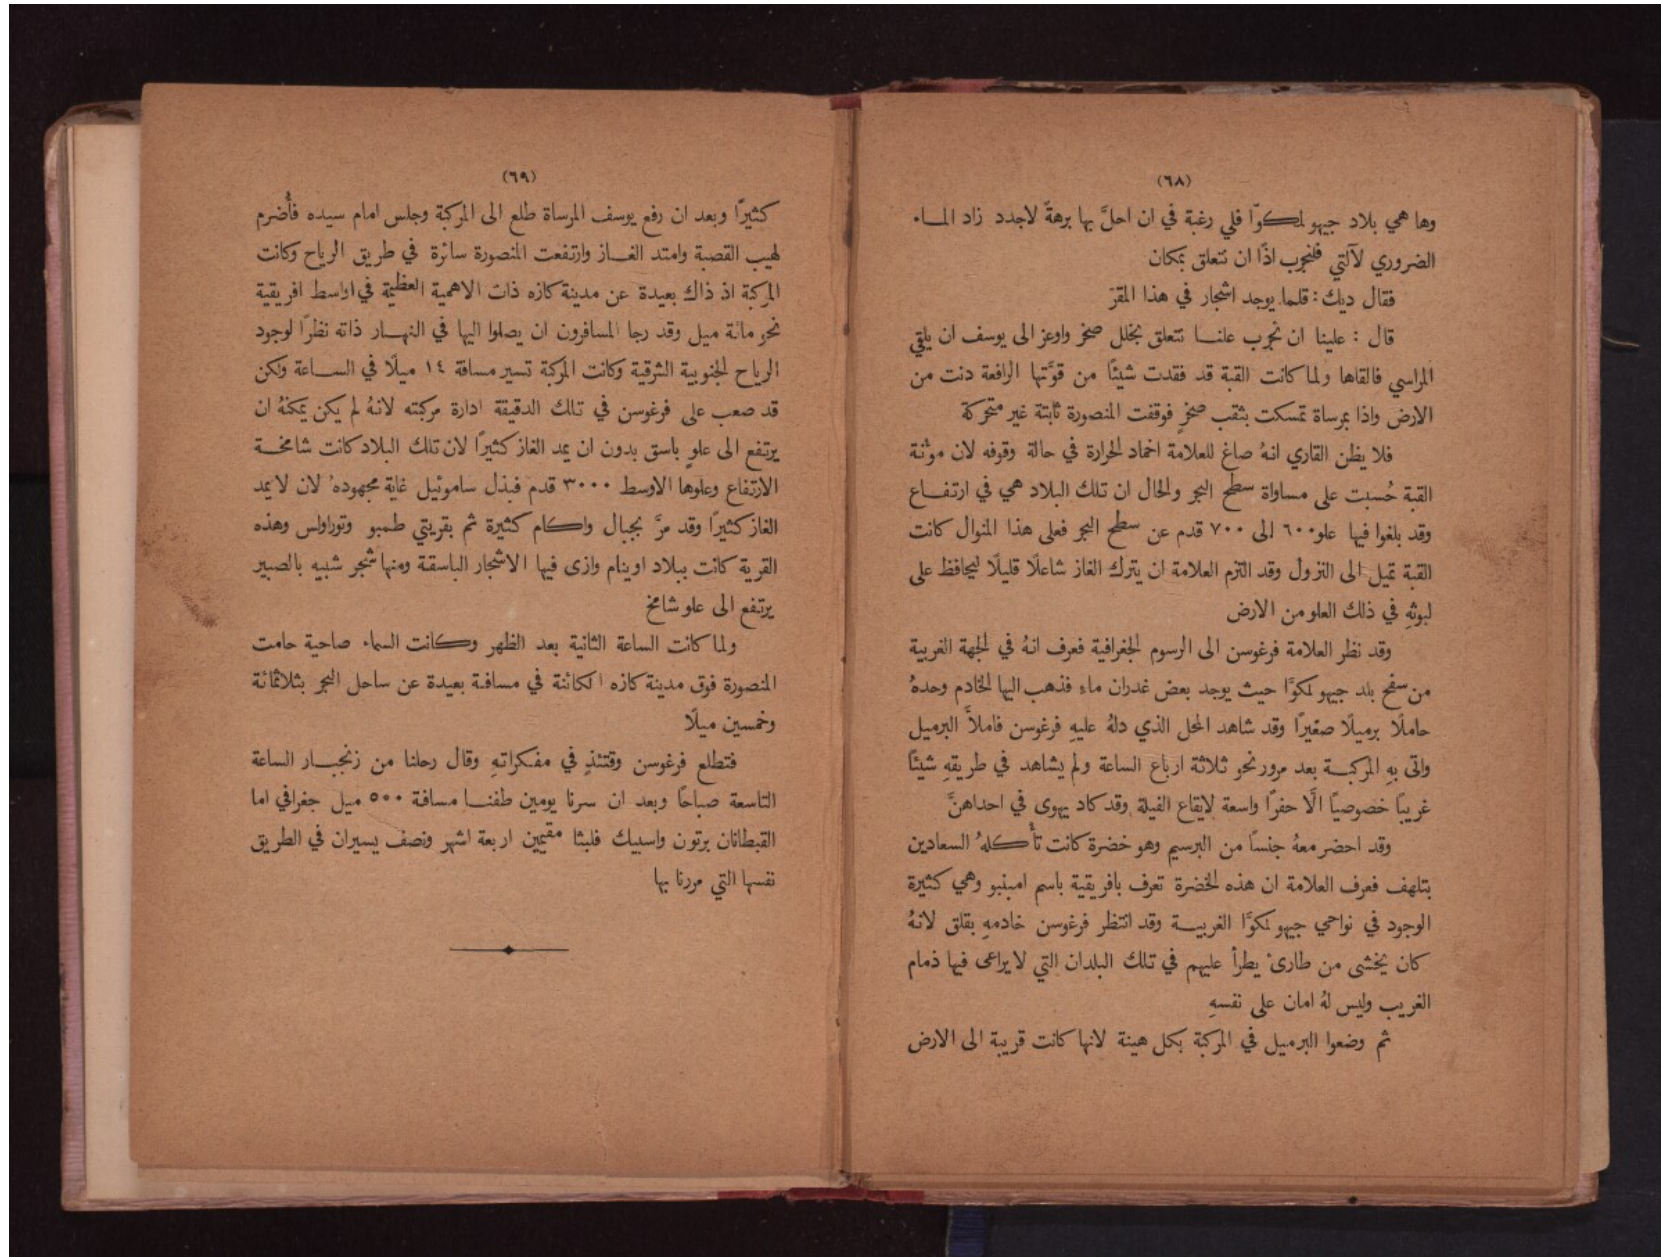 (٦٨)
وها هي بلاد جيهو لمكوّا فلي رغبة في ان احلَّ بها برهةً لاجدد زاد الماء
الضروري لآلتي فلنجرب اذًا ان نتعلق بمكان
فقال ديك: قلما يوجد اشجار في هذا المقرّ
قال : علينا ان نجرب علنا نتعلق بخلل صخر واوعز الى يوسف ان يلقي
المراسي فالقاها ولما كانت القبة قد فقدت شيئًا من قوَّتها الرافعة دنت من
الارض واذا بمرساة تمسكت بثقب صخرٍ فوقفت المنصورة ثابتة غير متحركة
فلا يظن القاري انهُ صاغ للعلامة اخماد الحرارة في حالة وقوفه لان موٴنة
القبة حُسبت على مساواة سطح البحر والحال ان تلك البلاد هي في ارتفاع
وقد بلغوا فيها علو ٦٠٠ الى ٧٠٠ قدم عن سطح البحر فعلى هذا المنوال كانت
القبة تميل الى النزول وقد التزم العلامة ان يترك الغاز شاعلًا قليلًا ليحافظ على
لبوثهِ في ذلك العلو من الارض
وقد نظر العلامة فرغوسن الى الرسوم الجغرافية فعرف انهُ في الجهة الغربية
من سفح بلد جيهو لمكوَّا حيث يوجد بعض غدران ماء فذهب اليها الخادم وحدهُ
حاملًا برميلًا صغيرًا وقد شاهد المحل الذي دلهُ عليهِ فرغوسن فاملأَ البرميل
واتى بهِ المركبة بعد مرور نحو ثلاثة ارباع الساعة ولم يشاهد في طريقهِ شيئًا
غريبًا خصوصيًا الَّا حفرًا واسعة لايقاع الفيلة وقد كاد يهوى في احداهنَّ
وقد احضر معهُ جنسًا من البرسيم وهو خضرة كانت تأكلهُ السعادين
بتلهف فعرف العلامة ان هذه الخضرة تعرف بافريقية باسم امبنبو وهي كثيرة
الوجود في نواحي جيهو لمكوَّا الغربية وقد انتظر فرغوسن خادمهِ بقلق لانهُ
كان يخشى من طارئ يطرأ عليهم في تلك البلدان التي لا يراعى فيها ذمام
الغريب وليس لهُ امان على نفسهِ
ثم وضعوا البرميل في المركبة بكل هينة لانها كانت قريبة الى الارض
(٦٩)
كثيرًا وبعد ان رفع يوسف المرساة طلع الى المركبة وجلس امام سيده فأُضرم
لهيب القصبة وامتد الغاز وارتفعت المنصورة سائرة في طريق الرياح وكانت
المركبة اذ ذاك بعيدة عن مدينة كازه ذات الاهمية العظيمة في اواسط افريقية
نحو مائة ميل وقد رجا المسافرون ان يصلوا اليها في النهار ذاته نظرًا لوجود
الرياح الجنوبية الشرقية وكانت المركبة تسير مسافة ١٤ ميلًا في الساعة ولكن
قد صعب على فرغوسن في تلك الدقيقة ادارة مركبته لانهُ لم يكن يمكنهُ ان
يرتفع الى علوٍ باسق بدون ان يمد الغاز كثيرًا لان تلك البلاد كانت شامخة
الارتفاع وعلوها الاوسط ٣٠٠٠ قدم فبذل ساموئيل غاية مجهودهُ لان لا يمد
الغاز كثيرًا وقد مرَّ بجبال واكام كثيرة ثم بقريتي طمبو وتوراولس وهذه
القرية كانت ببلاد اوينام وازى فيها الاشجار الباسقة ومنها شجر شبيه بالصبير
يرتفع الى علو شامخ
ولما كانت الساعة الثانية بعد الظهر وكانت السماء صاحية حامت
المنصورة فوق مدينة كازه الكائنة في مسافة بعيدة عن ساحل البحر بثلاثمائة
وخمسين ميلًا
فتطلع فرغوسن وقتئذٍ في مفكراتهِ وقال رحلنا من زنجبار الساعة
التاسعة صباحًا وبعد ان سرنا يومين طفنا مسافة ٥٠٠ ميل جغرافي اما
القبطانان برتون واسبيك فلبثا مقيمين اربعة اشهر ونصف يسيران في الطريق
نفسها التي مررنا بها